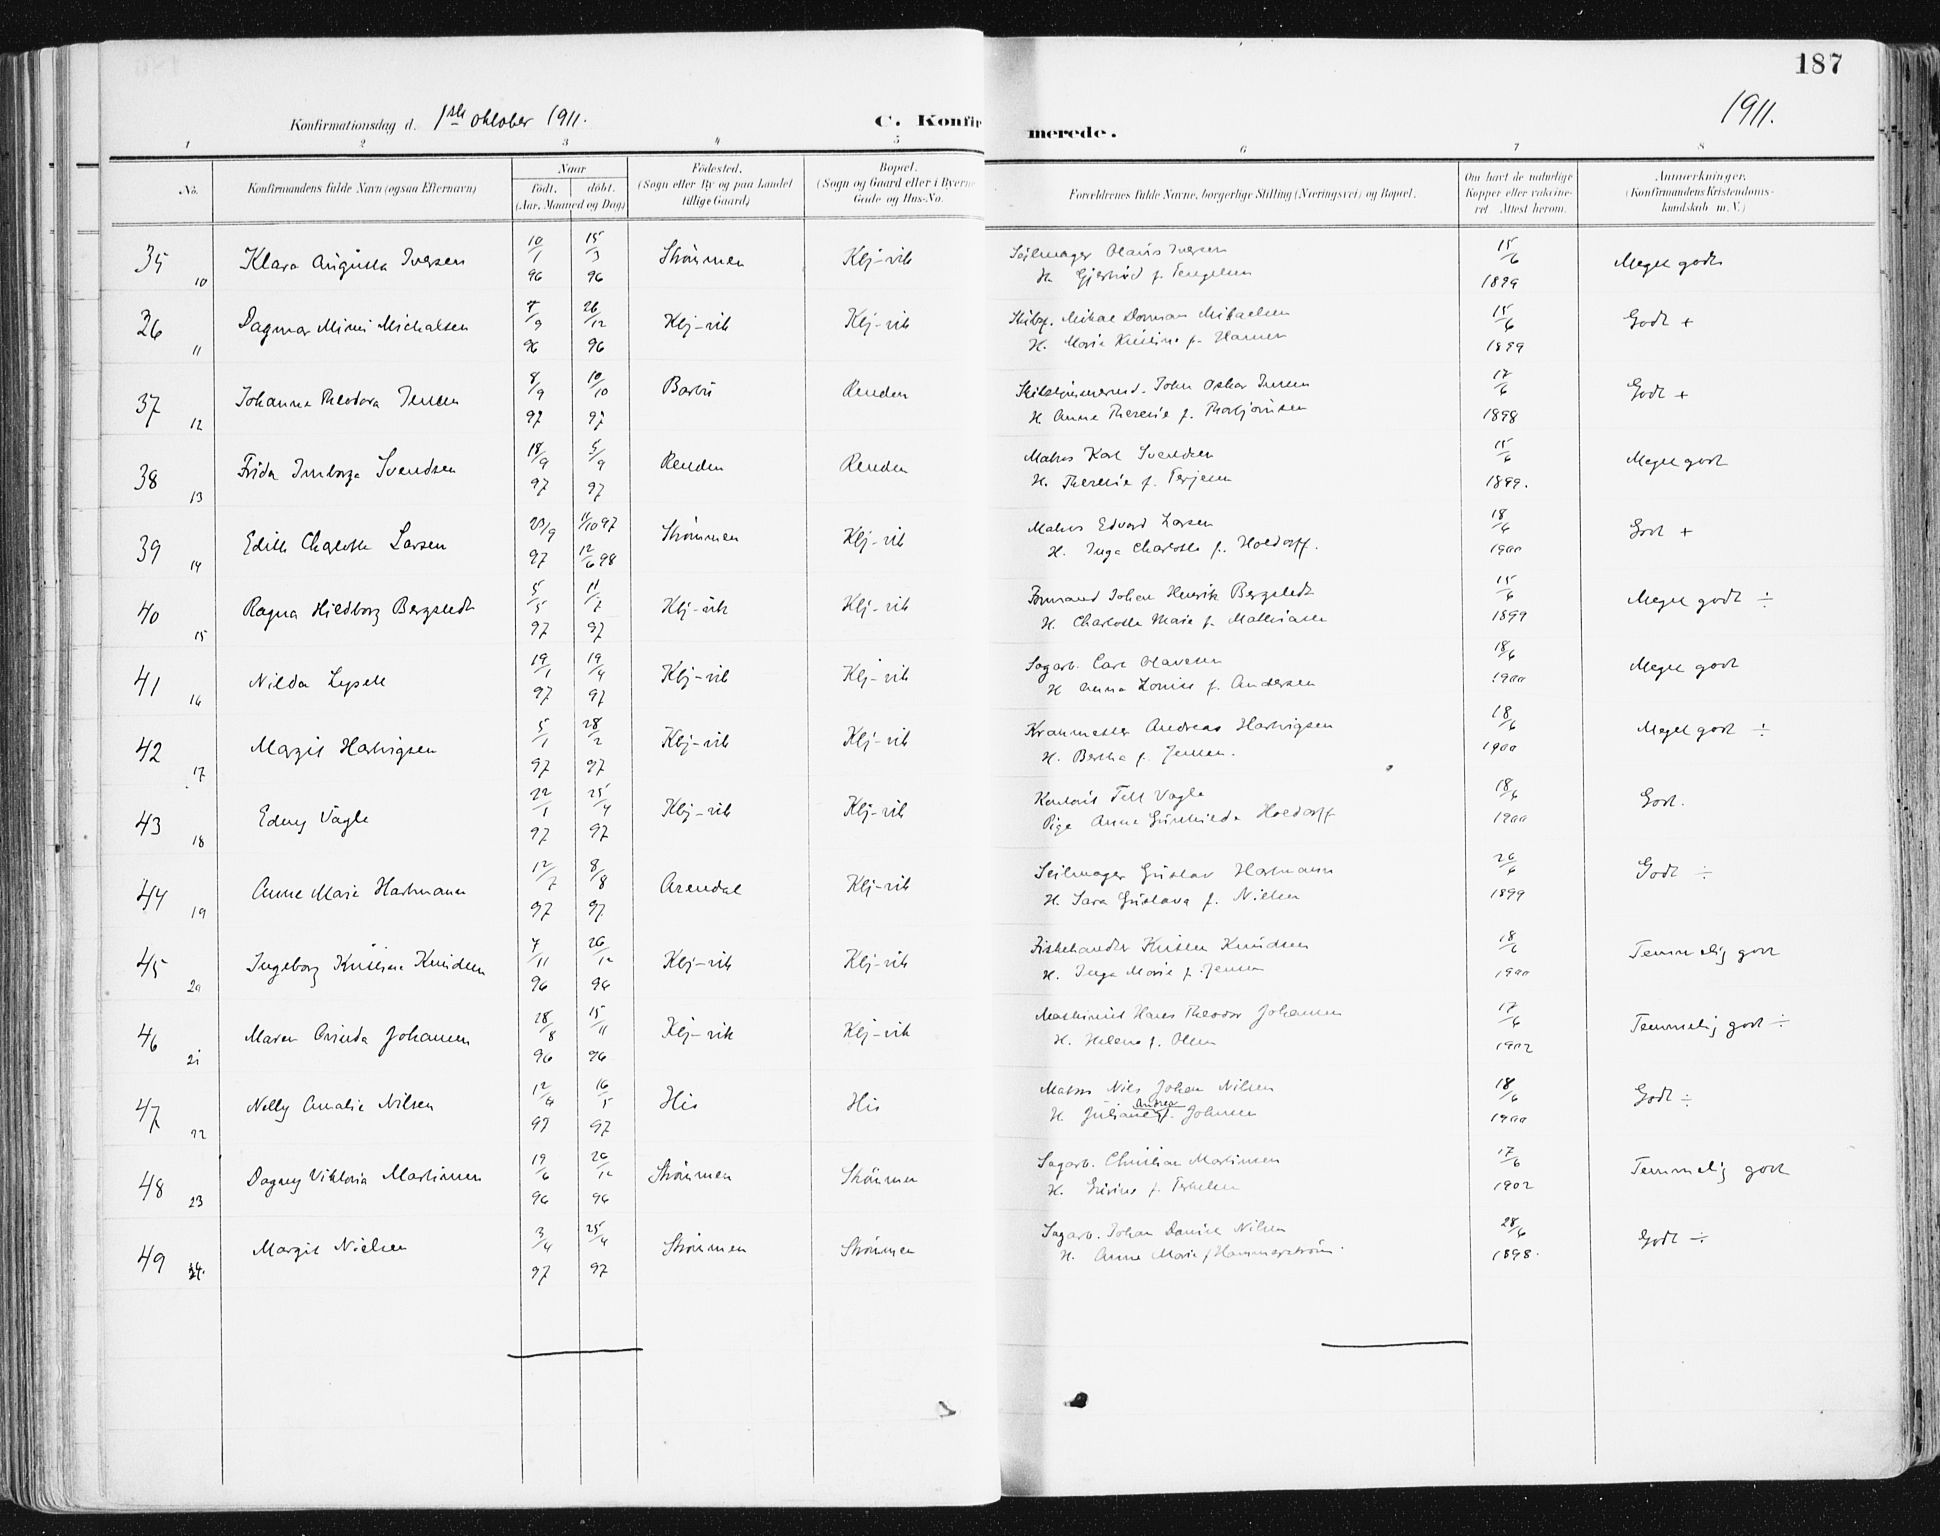 187
Konfirmationsdag d. 1ste oktober 1911.
C. Konfirmerede.
1911.
1 2 3 4 5 6 7 8
No. Konfirmandens fulde Navn (ogsaa Efternavn) Naar födt. döbt. (Aar, Maaned og Dag) Födested. (Sogn eller By og paa Landet tillige Gaard) Bopæl. (Sogn og Gaard eller i Byerne Gade og Hus-No. Forældrenes fulde Navne, borgerlige Stilling (Næringsvei) og Bopæl. Om havt de naturlige Kopper eller vaksineret. Attest herom. Anmærkninger. (Konfirmandens Kristendomskundskab m. V.)
35 10 Klara Augusta Iversen 10/1 96 15/3 96 Strømmen Klj-vik Seilmager Olaus Iversen 15/6 1899 Meget godt
H. Gjertrud f. Tengelsen
36 11 Dagmar Mimi Michalsen 7/9 96 26/12 96 Klj-vik Klj-vik 15/6 1899 Godt +
H. Marie Kristine f. Hansen
37 12 Johanne Theodora Jensen 8/9 97 10/10 97 Barbu Renden John Oskar Jensen 17/6 1898 Godt +
H. Anne Theresie f. Thorbjørnsen
38 13 Frida Imborga Svendsen 18/9 97 5/9 97 Renden Renden Matros Karl Svendsen 15/6 1899. Meget godt
H. Theresie f. Terjesen
39 14 Edith Charlotte Larsen 23/9 97 11/10 97 12/6 98 Strømmen Klj-vik Matros Edvard Larsen 18/6 1900 Godt +
H. Inga Charlotte f. Holdorff.
40 15 Ragna Hildborg Bergstedt 5/5 97 11/7 97 Klj-vik Klj-vik Formand Johan Henrik Bergstedt 15/6 1899 Meget godt ÷
H. Charlotte Marie f. Mathiasen
41 16 Nilda Lysell 19/1 97 19/4 97 Klj-vik Klj-vik Sagarb. Carl Olavesen 18/6 1900 Meget godt
H. Anna Louise f. Andersen
42 17 Margit Hartvigsen 5/1 97 28/2 97 Klj-vik Klj-vik Kranmester Andreas Hartvigsen 18/6 1900 Meget godt ÷
H. Bertha f. Jensen.
43 18 Edny Vagle 22/1 97 25/4 97 Klj-vik Klj-vik Kontorist Vagle 18/6 1900 Godt.
Pige Anna Gunhilda Holdorff
44 19 Anne Marie Hartmann 12/7 97 8/8 97 Arendal Klj-vik Seilmager Gustav Hartmann 26/6 1899 Godt ÷
H. Sara Gustava f. Nielsen
45 20 Ingeborg Kristine Knudsen 7/11 96 26/12 96 Klj-vik Klj-vik Fiskehandler Kristen Knudsen 18/6 1900 Temmelig godt
H. Inga Marie f. Jensen
46 21 Maren Johansen 28/8 96 15/11 96 Klj-vik Klj-vik Maskinist Hans Theodor Johansen 17/6 1902 Temmelig godt ÷
H. Helene f. Olsen
47 22 Nelly Amalie Nilsen 12/4 97 16/5 97 His His Matros Nils Johan Nilsen 18/6 1900 Godt ÷
H. Juliane Andrea f. Johnsen
48 23 Dagny Viktoria Martinsen 19/6 96 26/12 96 Strømmen Strømmen Sagarb. Christian Martinsen 17/6 1902 Temmelig godt
H. f. Terkelsen
49 24. Margit Nielsen 3/4 97 25/4 97 Strømmen Strømmen Sagarb. Johan Daniel Nilsen 28/6 1898. Godt ÷
H. Anne Marie f. Hammerstrøm.